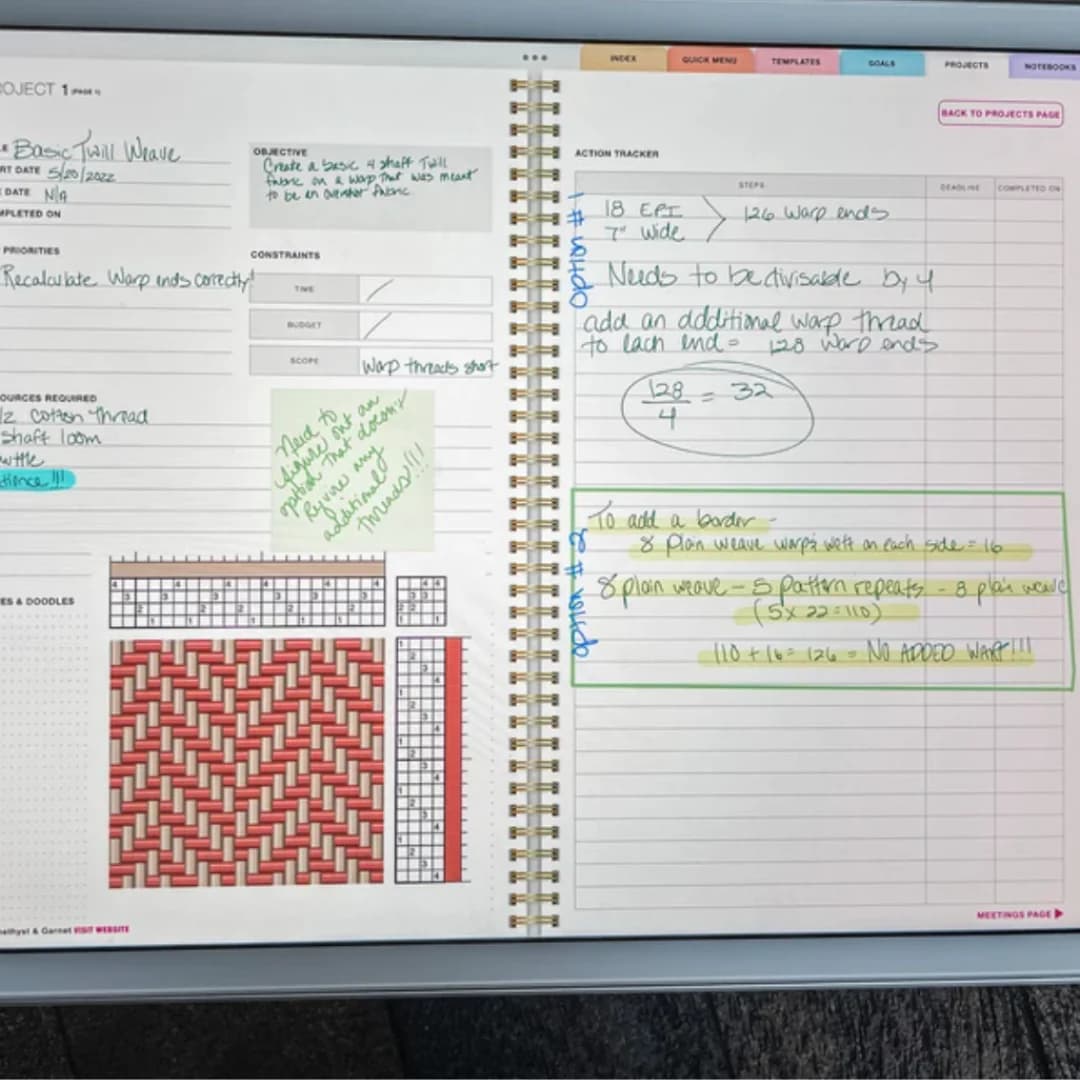 INDEX
QUICK MENU
TEMPLATES
GOALS
PROJECTS
NOTEBOOKS
OJECT 1 (PAGE 1)
Basic Twill Weave
RT DATE 5/20/2022
DATE N/A
MPLETED ON
PRIORITIES
Recalculate Warp ends correctly!
OURCES REQUIRED
/2 Cotton Thread
shaft loom
uttle
tience !!!
ES & DOODLES
OBJECTIVE
Create a basic 4 shaft Twill
fabric on a warp that was meant
to be an overshot fabric
CONSTRAINTS
TIME
BUDGET
SCOPE Warp threads short
Need to
figure out an
option that doesn't
Require any
additional
threads!!!
ethyst & Garnet VISIT WEBSITE
BACK TO PROJECTS PAGE
ACTION TRACKER
STEPS
DEADLINE
COMPLETED ON
option # 1
18 EPI
7" wide
126 warp ends
Needs to be divisable by 4
add an additional warp thread
to each end = 128 warp ends
128
4
= 32
option # 2
To add a border -
8 plain weave warp & weft on each side = 16
8 plain weave - 5 pattern repeats - 8 plain weave
(5 x 22 = 110)
110 + 16 = 126 = NO ADDED WARP!!!
MEETINGS PAGE